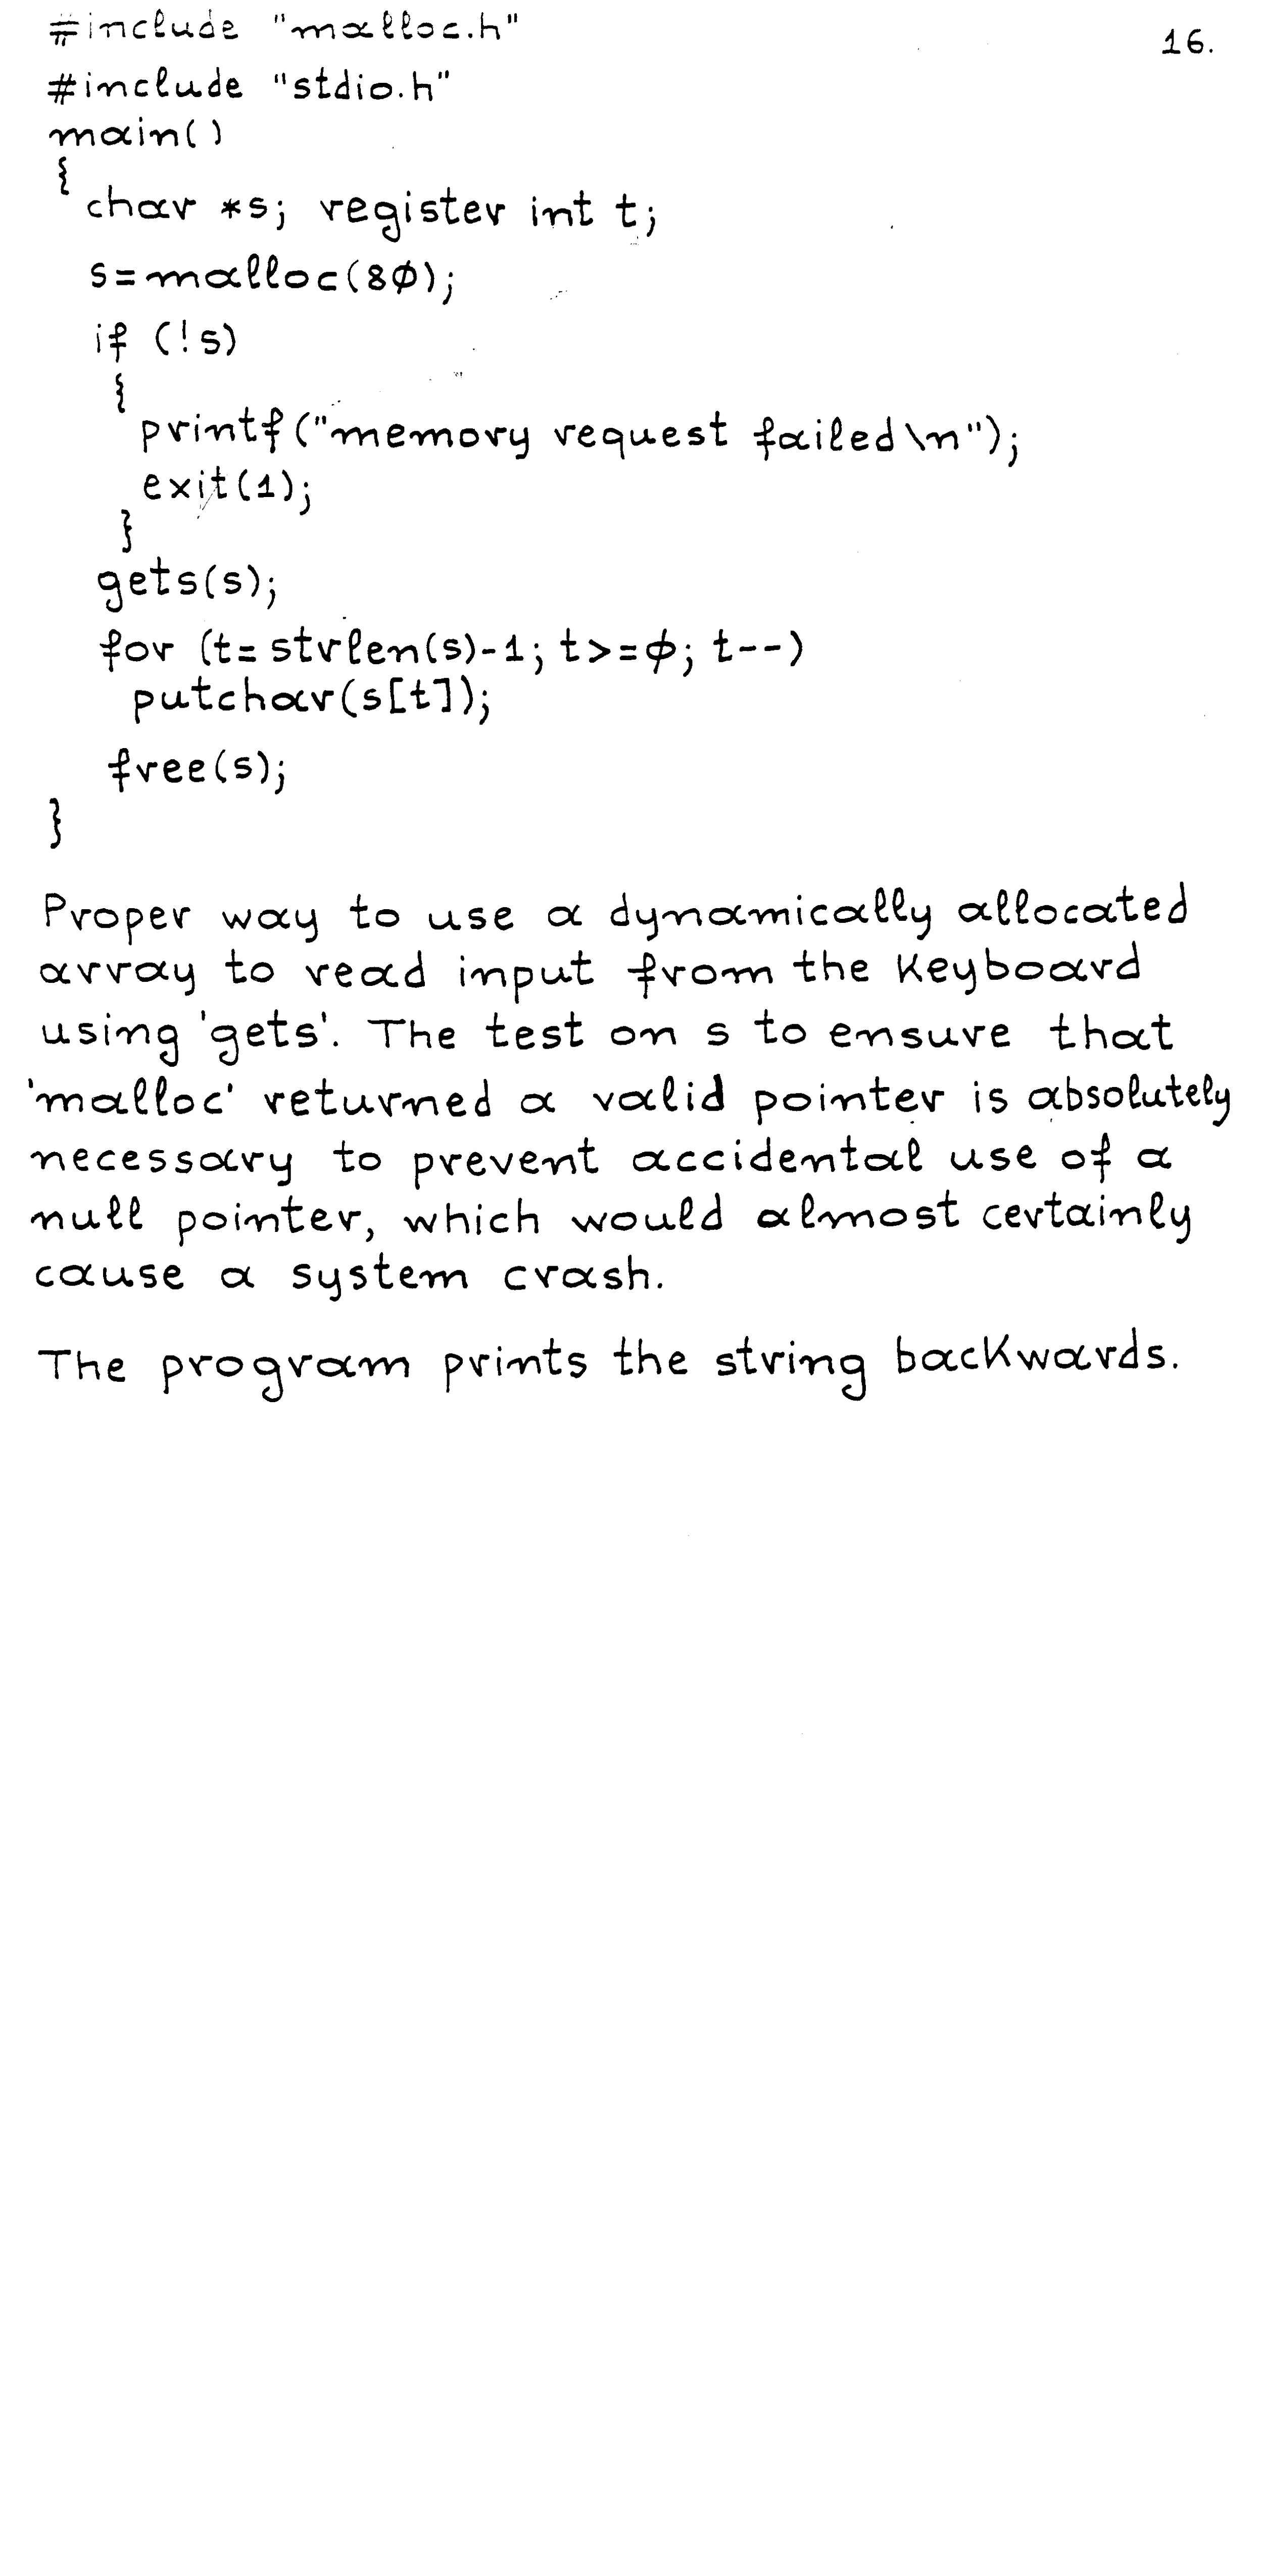 #include "malloc.h"
16.
#include "stdio.h"
main()
{
char *s; register int t;
s=malloc(80);
if (!s)
{
printf("memory request failed\n");
exit(1);
}
gets(s);
for (t=strlen(s)-1; t>=0; t--)
putchar(s[t]);
free(s);
}
Proper way to use a dynamically allocated
array to read input from the keyboard
using 'gets'. The test on s to ensure that
'malloc' returned a valid pointer is absolutely
necessary to prevent accidental use of a
null pointer, which would almost certainly
cause a system crash.
The program prints the string backwards.